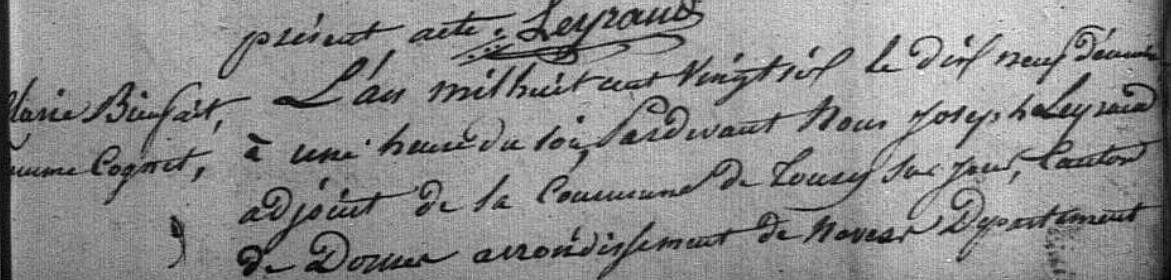 présent acte. Leyraud
L'an mil huit cent Vingt six le dix neuf décembre
Marie Bienfait, à une heure du soir, Pardevant Nous joseph Leyraud
Cognet, adjoint de la Commune de Toury sur jour, Canton
de Dornes arrondissement de Nevers Departement